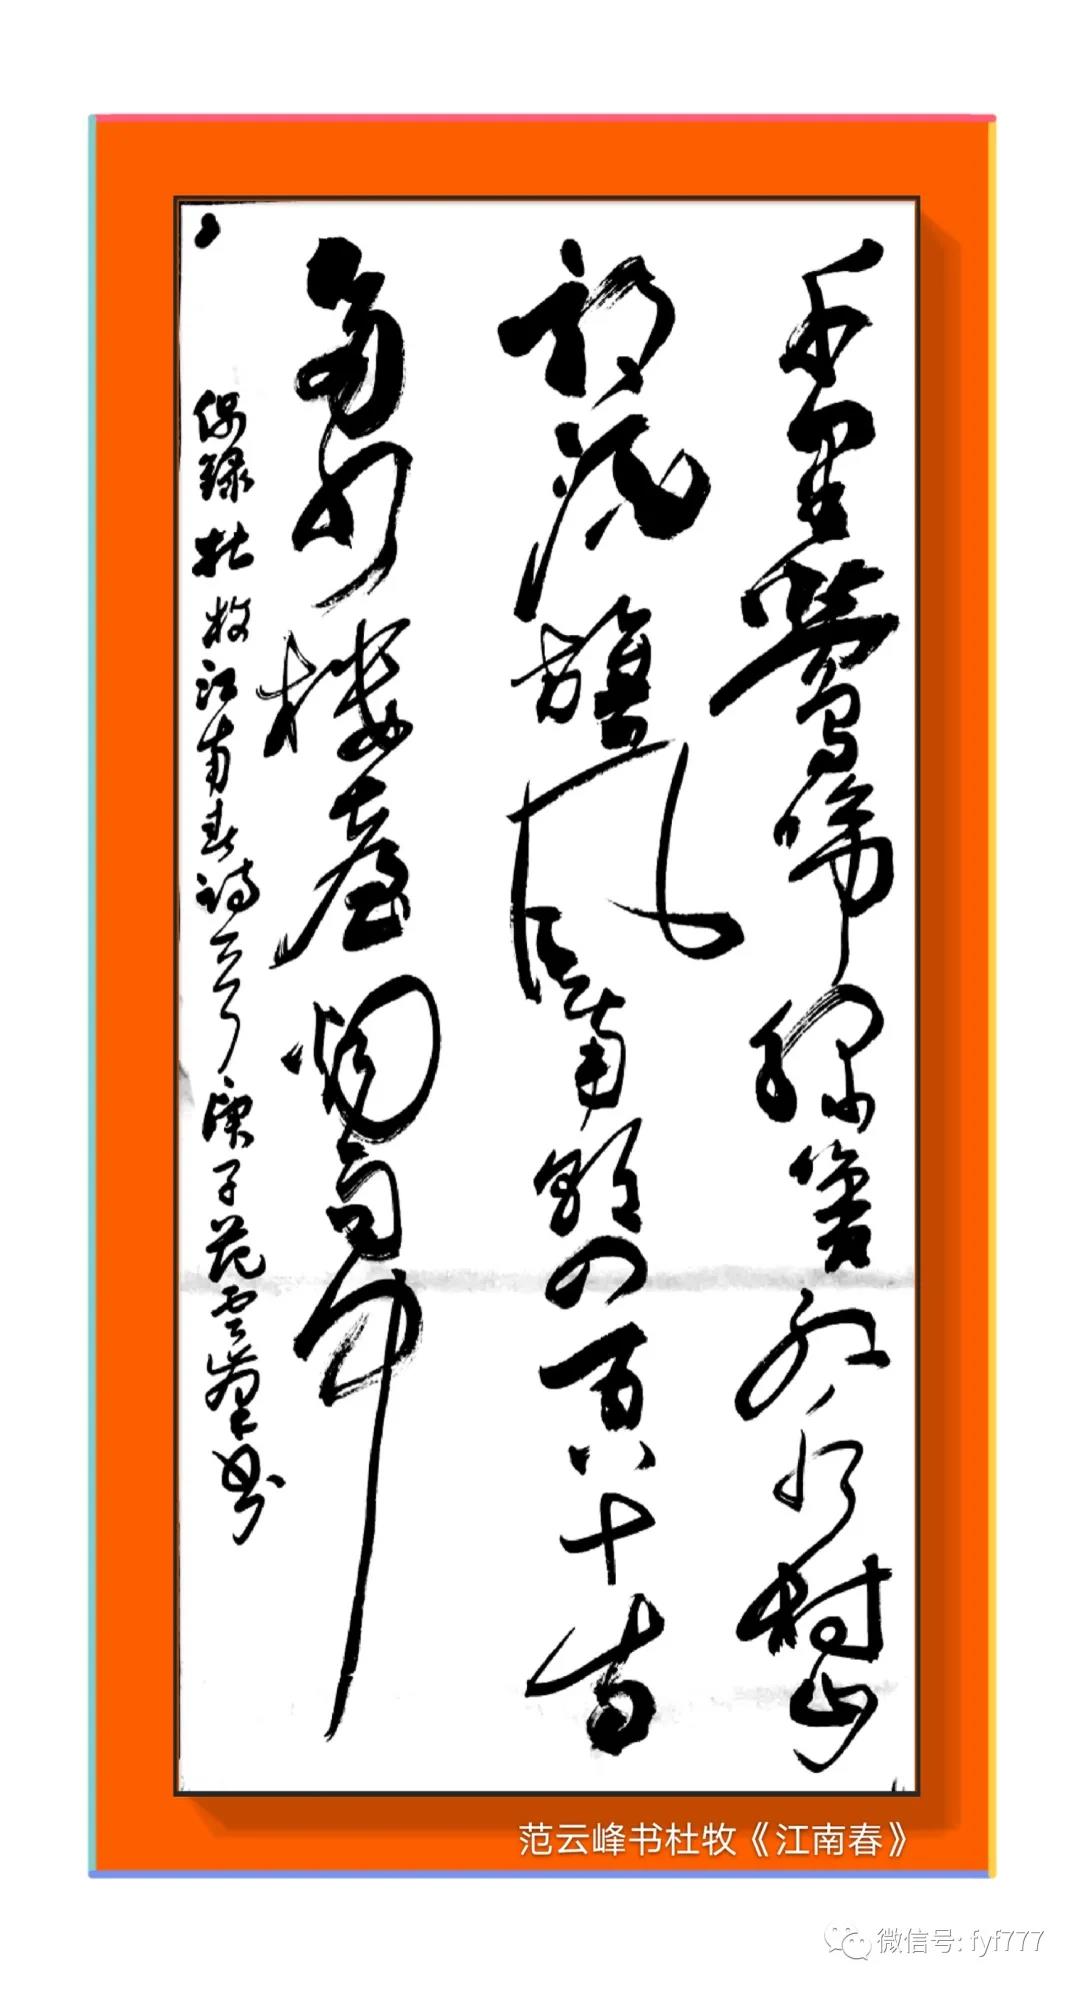 千里鶯啼綠紅水村山
郭酒旗風南朝四百八十寺
多少樓臺烟雨中
偶錄杜牧江南春詩庚子范雲峯書
范云峰书杜牧《江南春》
微信号: fyf777